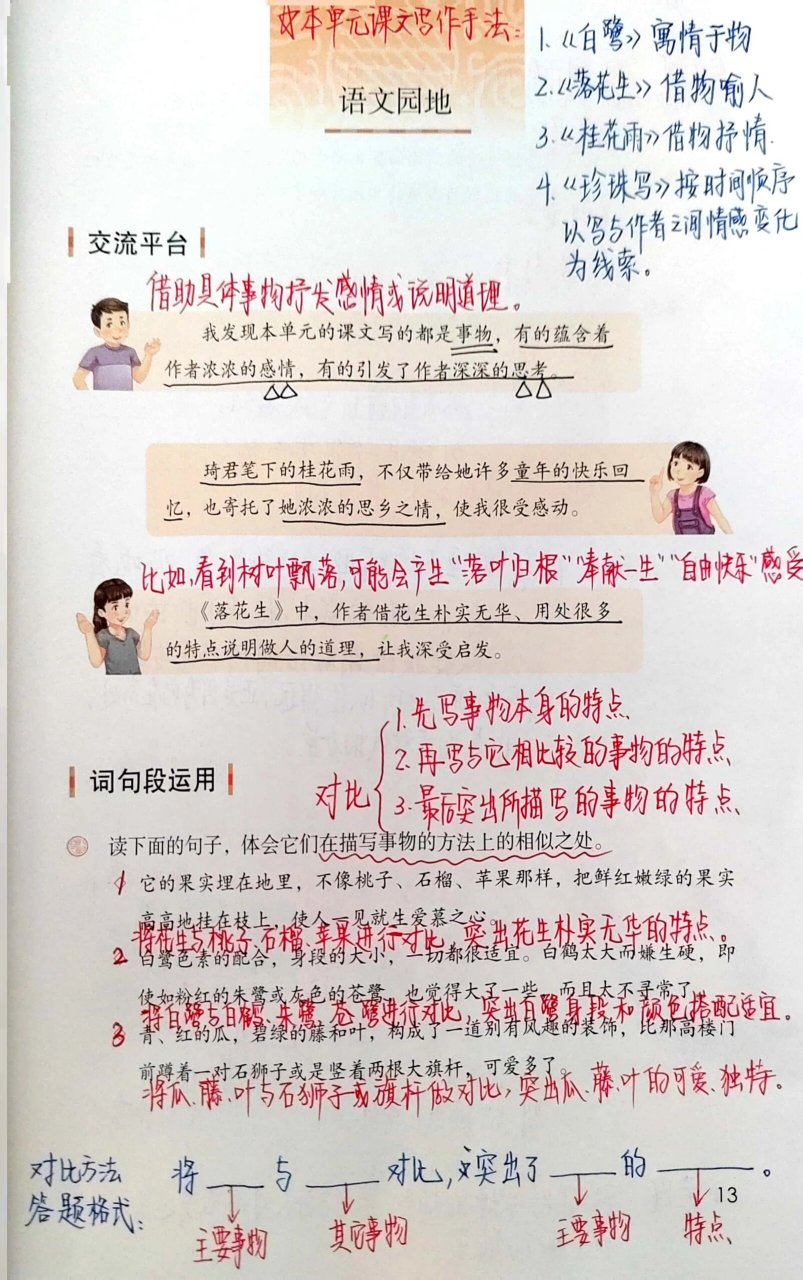 好本单元课文写作手法:
1.《白鹭》寓情于物
语文园地
2.《落花生》借物喻人
3.《桂花雨》借物抒情.
4.《珍珠鸟》按时间顺序
以鸟与作者之间情感变化
为线索。
交流平台
借助具体事物抒发感情或说明道理。
我发现本单元的课文写的都是事物，有的蕴含着
作者浓浓的感情，有的引发了作者深深的思考。
琦君笔下的桂花雨，不仅带给她许多童年的快乐回
忆，也寄托了她浓浓的思乡之情，使我很受感动。
比如,看到树叶飘落,可能会产生“落叶归根”“奉献一生”“自由快乐”感受
《落花生》中，作者借花生朴实无华、用处很多
的特点说明做人的道理，让我深受启发。
对比
1.先写事物本身的特点
2.再写与它相比较的事物的特点
3.最后突出所描写的事物的特点
词句段运用
读下面的句子，体会它们在描写事物的方法上的相似之处。
1 它的果实埋在地里，不像桃子、石榴、苹果那样，把鲜红嫩绿的果实
高高地挂在枝上，使人一见就生爱慕之心。
将花生与桃子、石榴、苹果进行对比，突出花生朴实无华的特点。
2 白鹭色素的配合，身段的大小，一切都很适宜。白鹤太大而嫌生硬，即
使如粉红的朱鹭或灰色的苍鹭，也觉得大了一些，而且太不寻常了。
将白鹭与白鹤、朱鹭、苍鹭进行对比，突出白鹭身段和颜色搭配适宜。
3 青、红的瓜，碧绿的藤和叶，构成了一道别有风趣的装饰，比那高楼门
前蹲着一对石狮子或是竖着两根大旗杆，可爱多了。
将瓜、藤、叶与石狮子或旗杆做对比，突出瓜、藤、叶的可爱、独特。
对比方法
答题格式:
将____与____对比,突出了____的____。
13
主要事物 其它事物 主要事物 特点